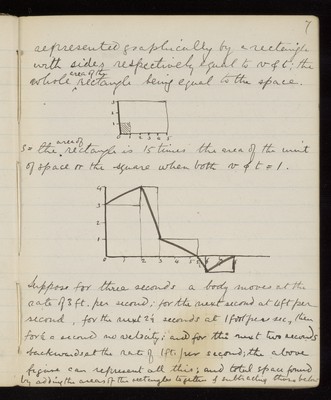 7
represented graphically by a rectangle
with sides respectively equal to v & t; the
area of the
whole rectangle being equal to the space.
3
2
1
0 1 2 3 4 5
area of
S = the rectangle is 15 times the area of the unit
of space or the square when both v & t = 1.
4
3
2
1
0 1 2 3 4 5
Suppose for three seconds a body moves at the
rate of 3 ft. per second: for the next second at 4 ft per
second, for the next 2½ seconds at 1 foot per sec, then
for ½ a second no velocity: and for the next two seconds
backwards at the rate of 1 ft. per second; the above
figure can represent all this; and total space found
by adding the areas of the rectangles together & subtracting those below